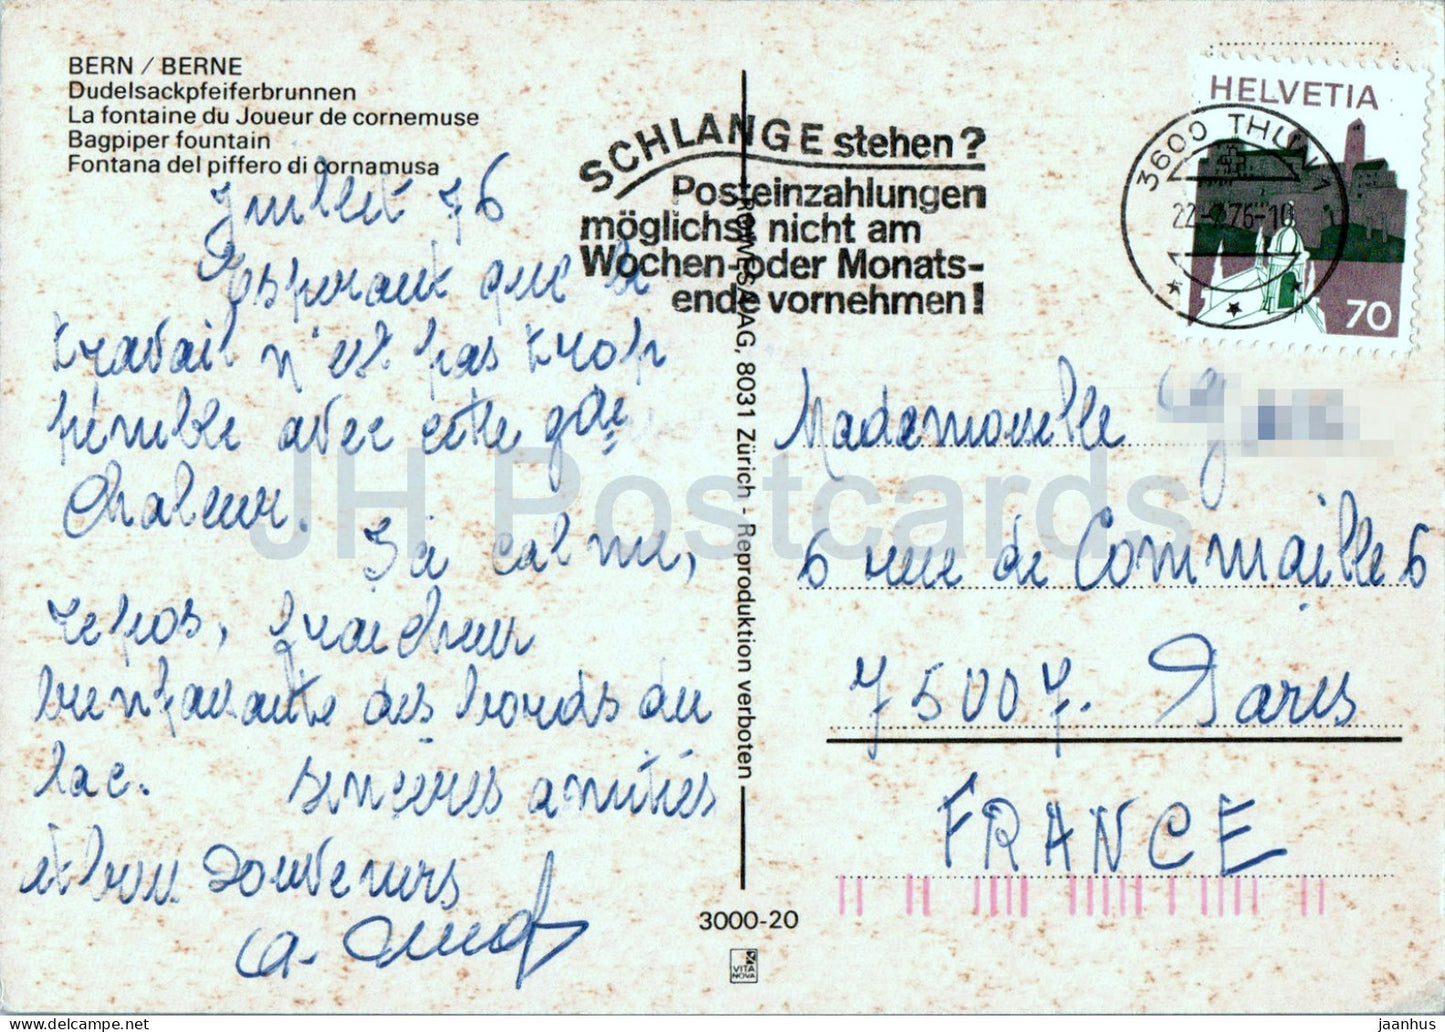 BERN / BERNE
Dudelsackpfeiferbrunnen
La fontaine du Joueur de cornemuse
Bagpiper fountain
Fontana del piffero di cornamusa
Juillet 76
J'espérant que le
travail n'est pas trop
pénible avec cette gde
Chaleur.
Ici calme,
repos, fraicheur
bienfaisante des bords du
lac. sincères amitiés
et bon souvenirs
SCHLANGE stehen?
Posteinzahlungen
möglichst nicht am
Wochen- oder Monats-
ende vornehmen!
HELVETIA
70
3600 THUN 1
AG, 8031 Zürich - Reproduktion verboten
Mademoiselle
6 rue de Commaille 6
75007. Paris
FRANCE
3000-20
VITA
NOVA
JH Postcards
jaanhus